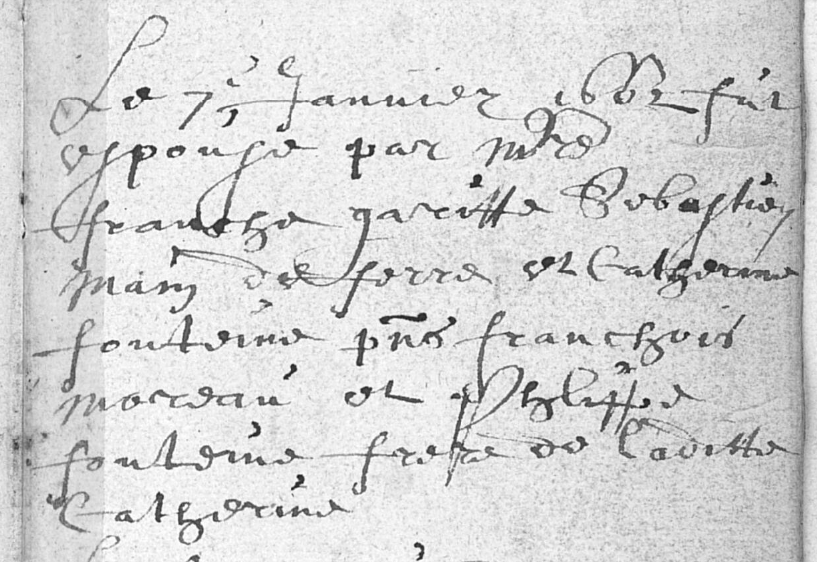 Le 7e Janvier 1662 fut
espouse par mre
franche garitte Sebastien
Main de ferre et Catherine
fonteine pñs franchois
moreau et Phlippe
fonteine frere de Laditte
Catherine